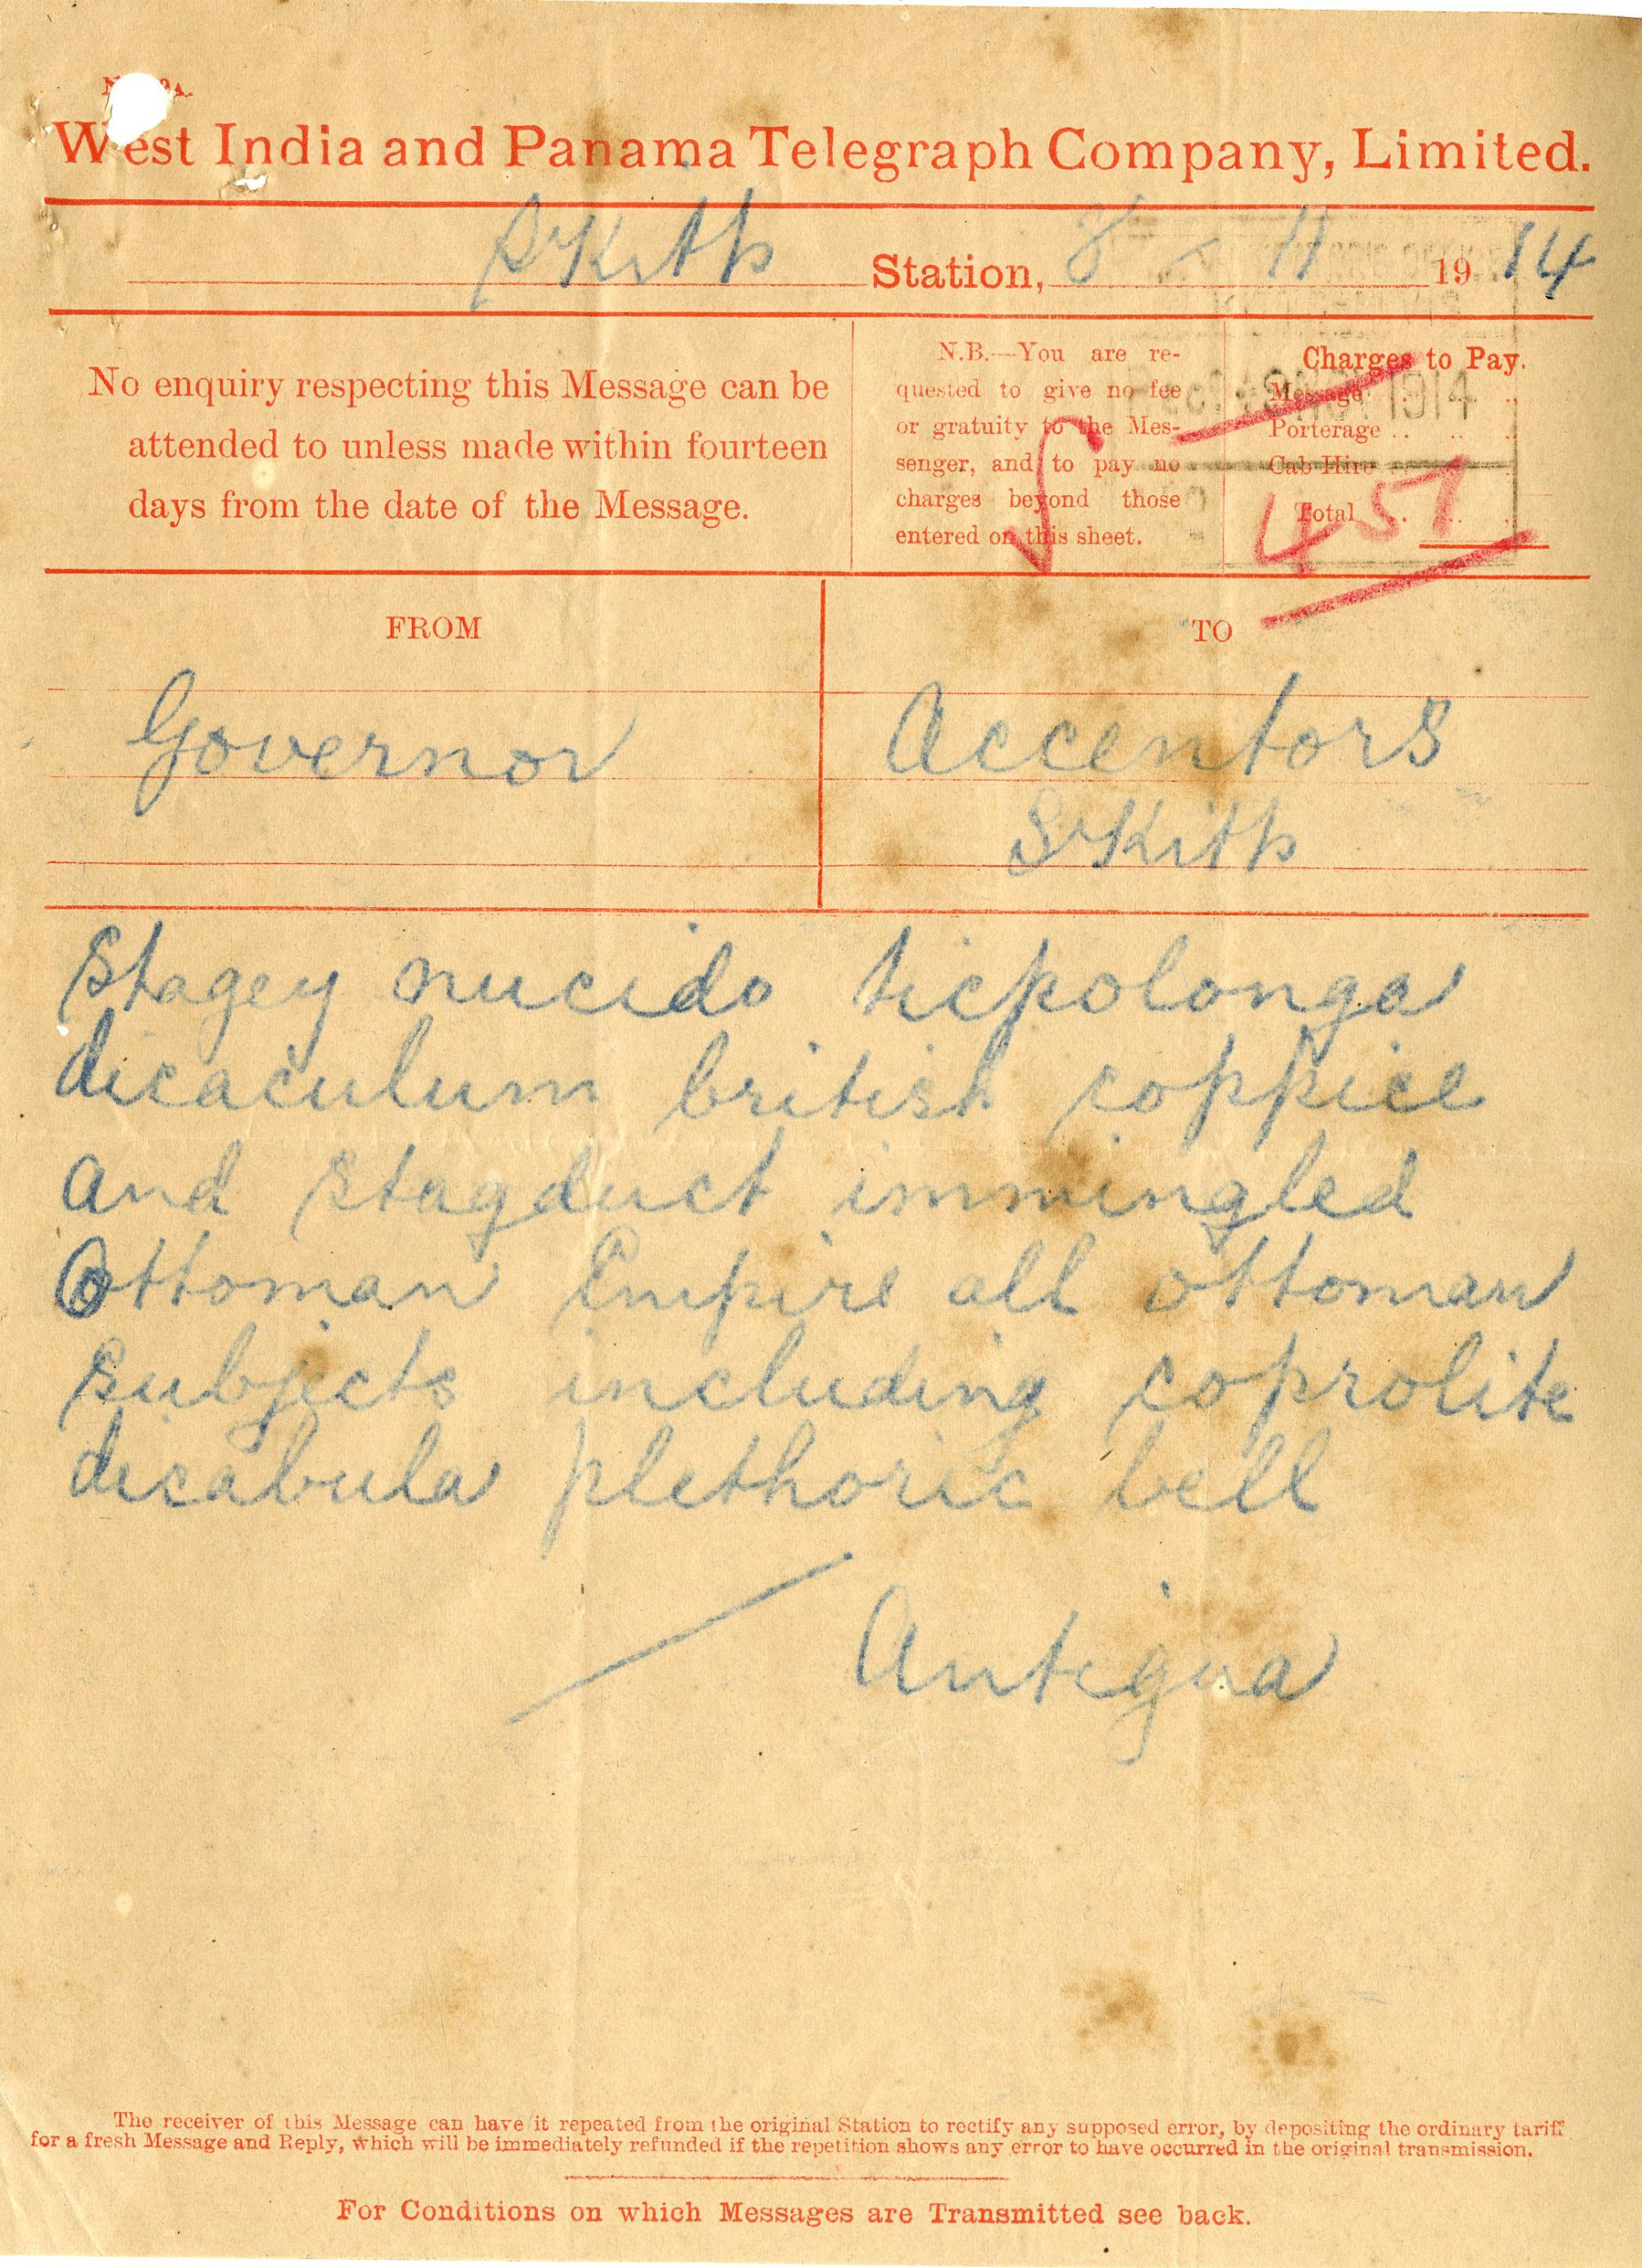 West India and Panama Telegraph Company, Limited.
St Kitts Station, 8 - 11 1914
No enquiry respecting this Message can be
attended to unless made within fourteen
days from the date of the Message.
N.B.—You are re-
quested to give no fee
or gratuity to the Mes-
senger, and to pay no
charges beyond those
entered on this sheet.
Charges to Pay.
Message
Porterage
Cab Hire
Total
457
1914
FROM
TO
Governor
Accentors
St Kitts
Stagey nucido ticpolonga
dicaculum british coppice
and stagduct immingled
Ottoman Empire all ottoman
subjects including coprolite
dicabula plethoric bell
Antigua
The receiver of this Message can have it repeated from the original Station to rectify any supposed error, by depositing the ordinary tariff
for a fresh Message and Reply, which will be immediately refunded if the repetition shows any error to have occurred in the original transmission.
For Conditions on which Messages are Transmitted see back.